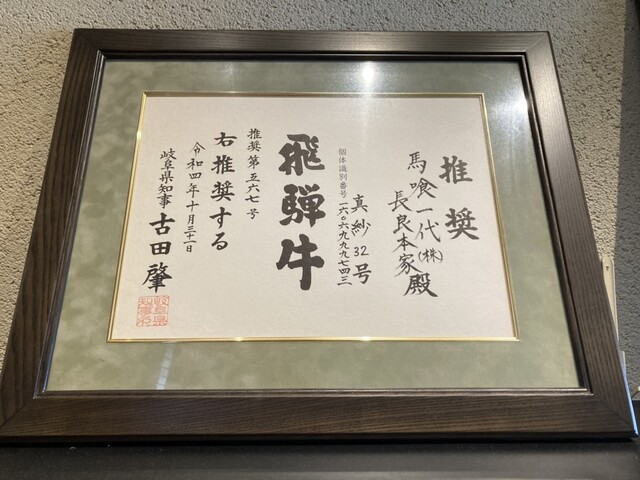 推奨
馬喰一代(株)
長良本家殿
真紗32号
個体識別番号 一六〇六九九九七四三
飛騨牛
推奨第五六七号
右推奨する
令和四年十月三十一日
岐阜県知事 古田肇
岐阜県知事之印